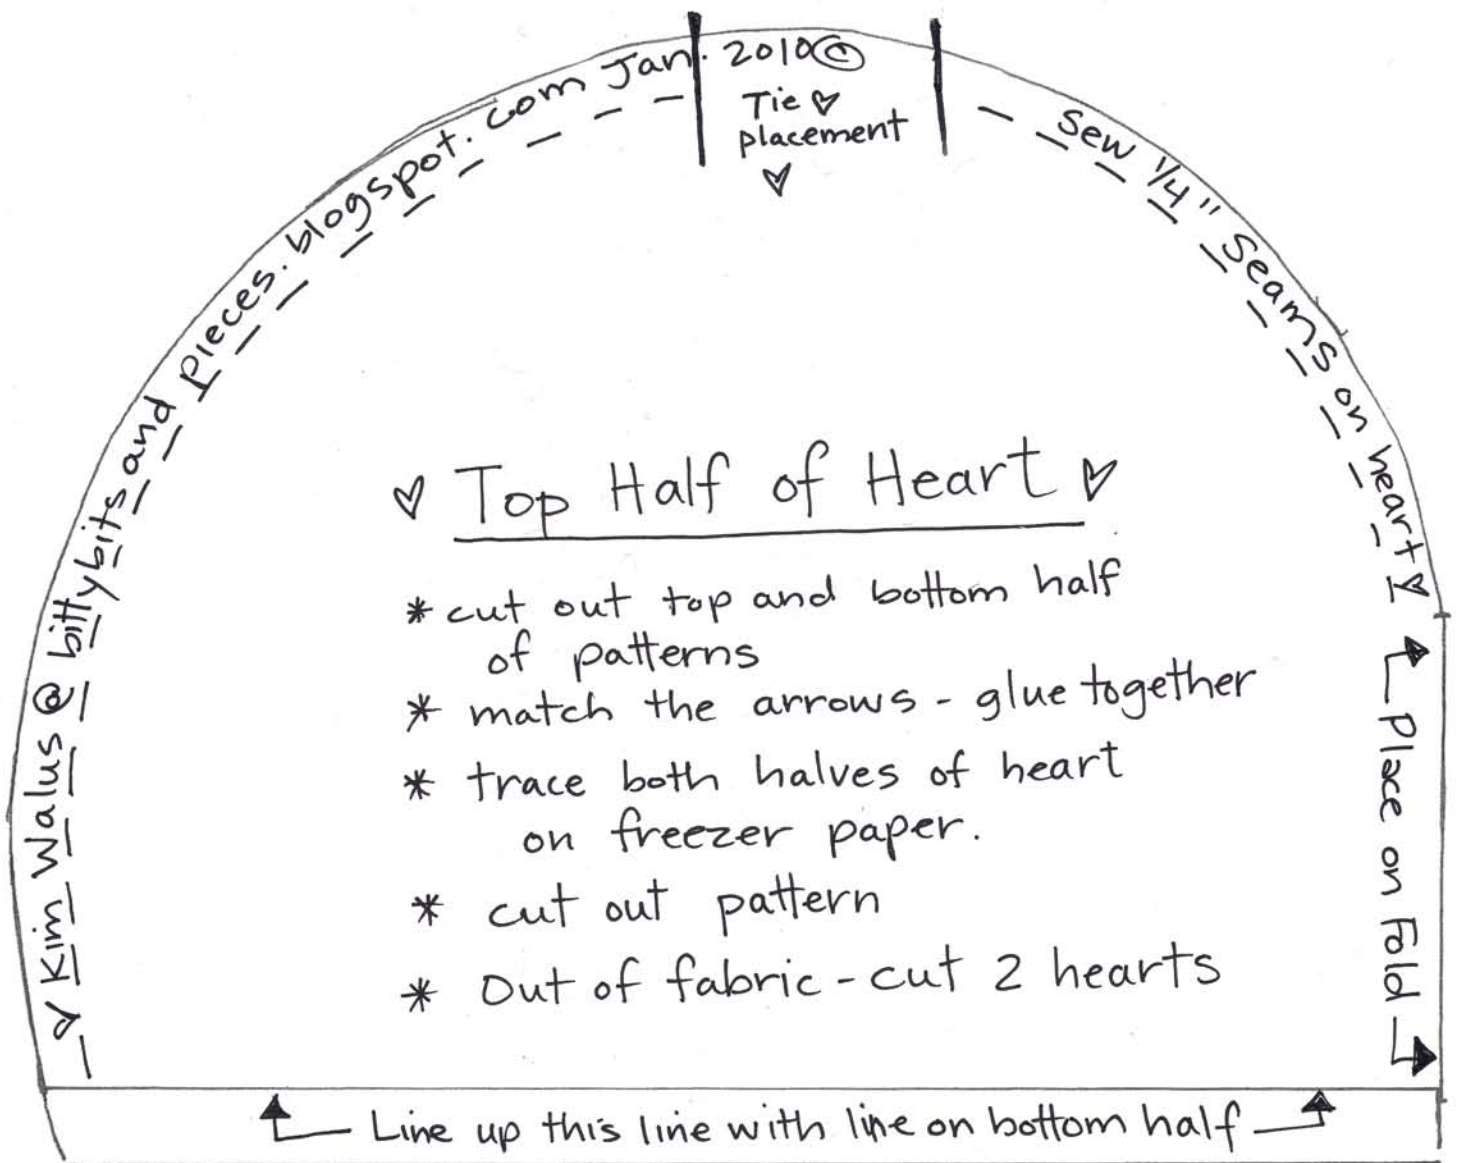 ♡ Kim Walus @ bittybits and pieces.blogspot.com Jan. 2010©
Tie ♡
placement
♡
Sew 1/4" Seams on heart ♡
♡ Top Half of Heart ♡
* cut out top and bottom half
of patterns
* match the arrows - glue together
* trace both halves of heart
on freezer paper.
* cut out pattern
* Out of fabric - cut 2 hearts
Place on Fold
Line up this line with line on bottom half